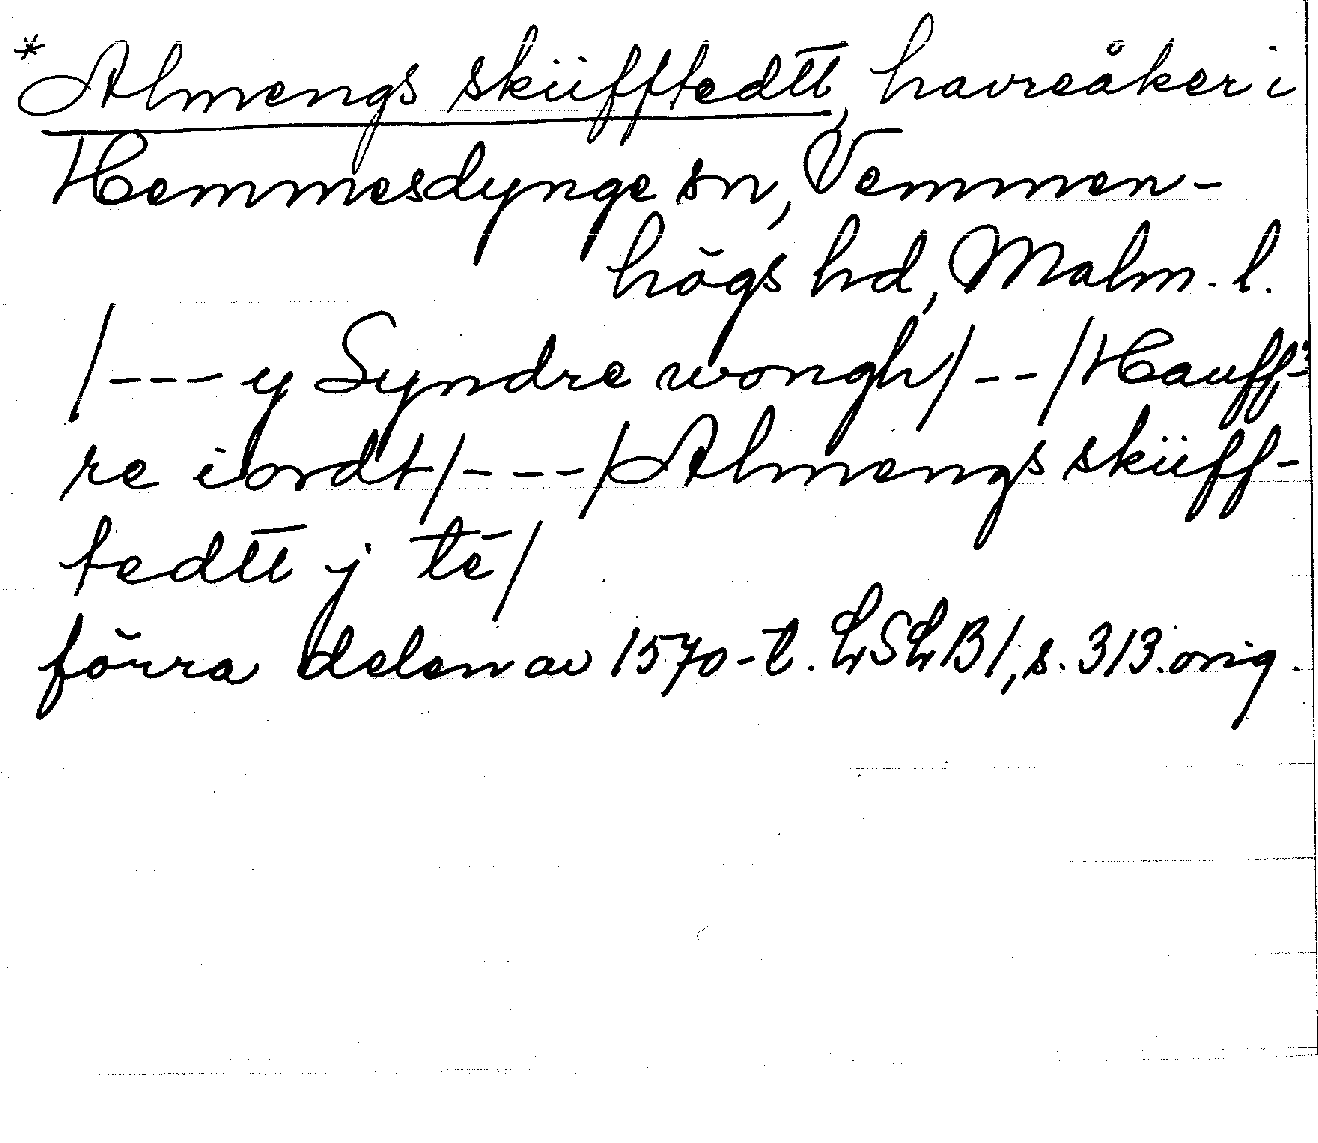 *Almengs skiifftedtt, havreåker i
Hemmesdynge sn, Vemmen-
högs hd, Malm. l.
/---y Syndre wongh/--/Hauff-
re iordt/---/Almengs skiiff-
tedtt j tē/
förra delen av 1570-t. LSLB1, s. 313. orig.